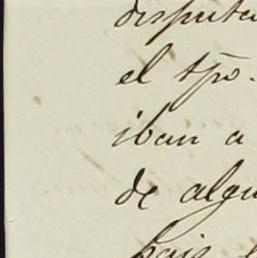 disputa
el tpo.
iban a
de algu
baje